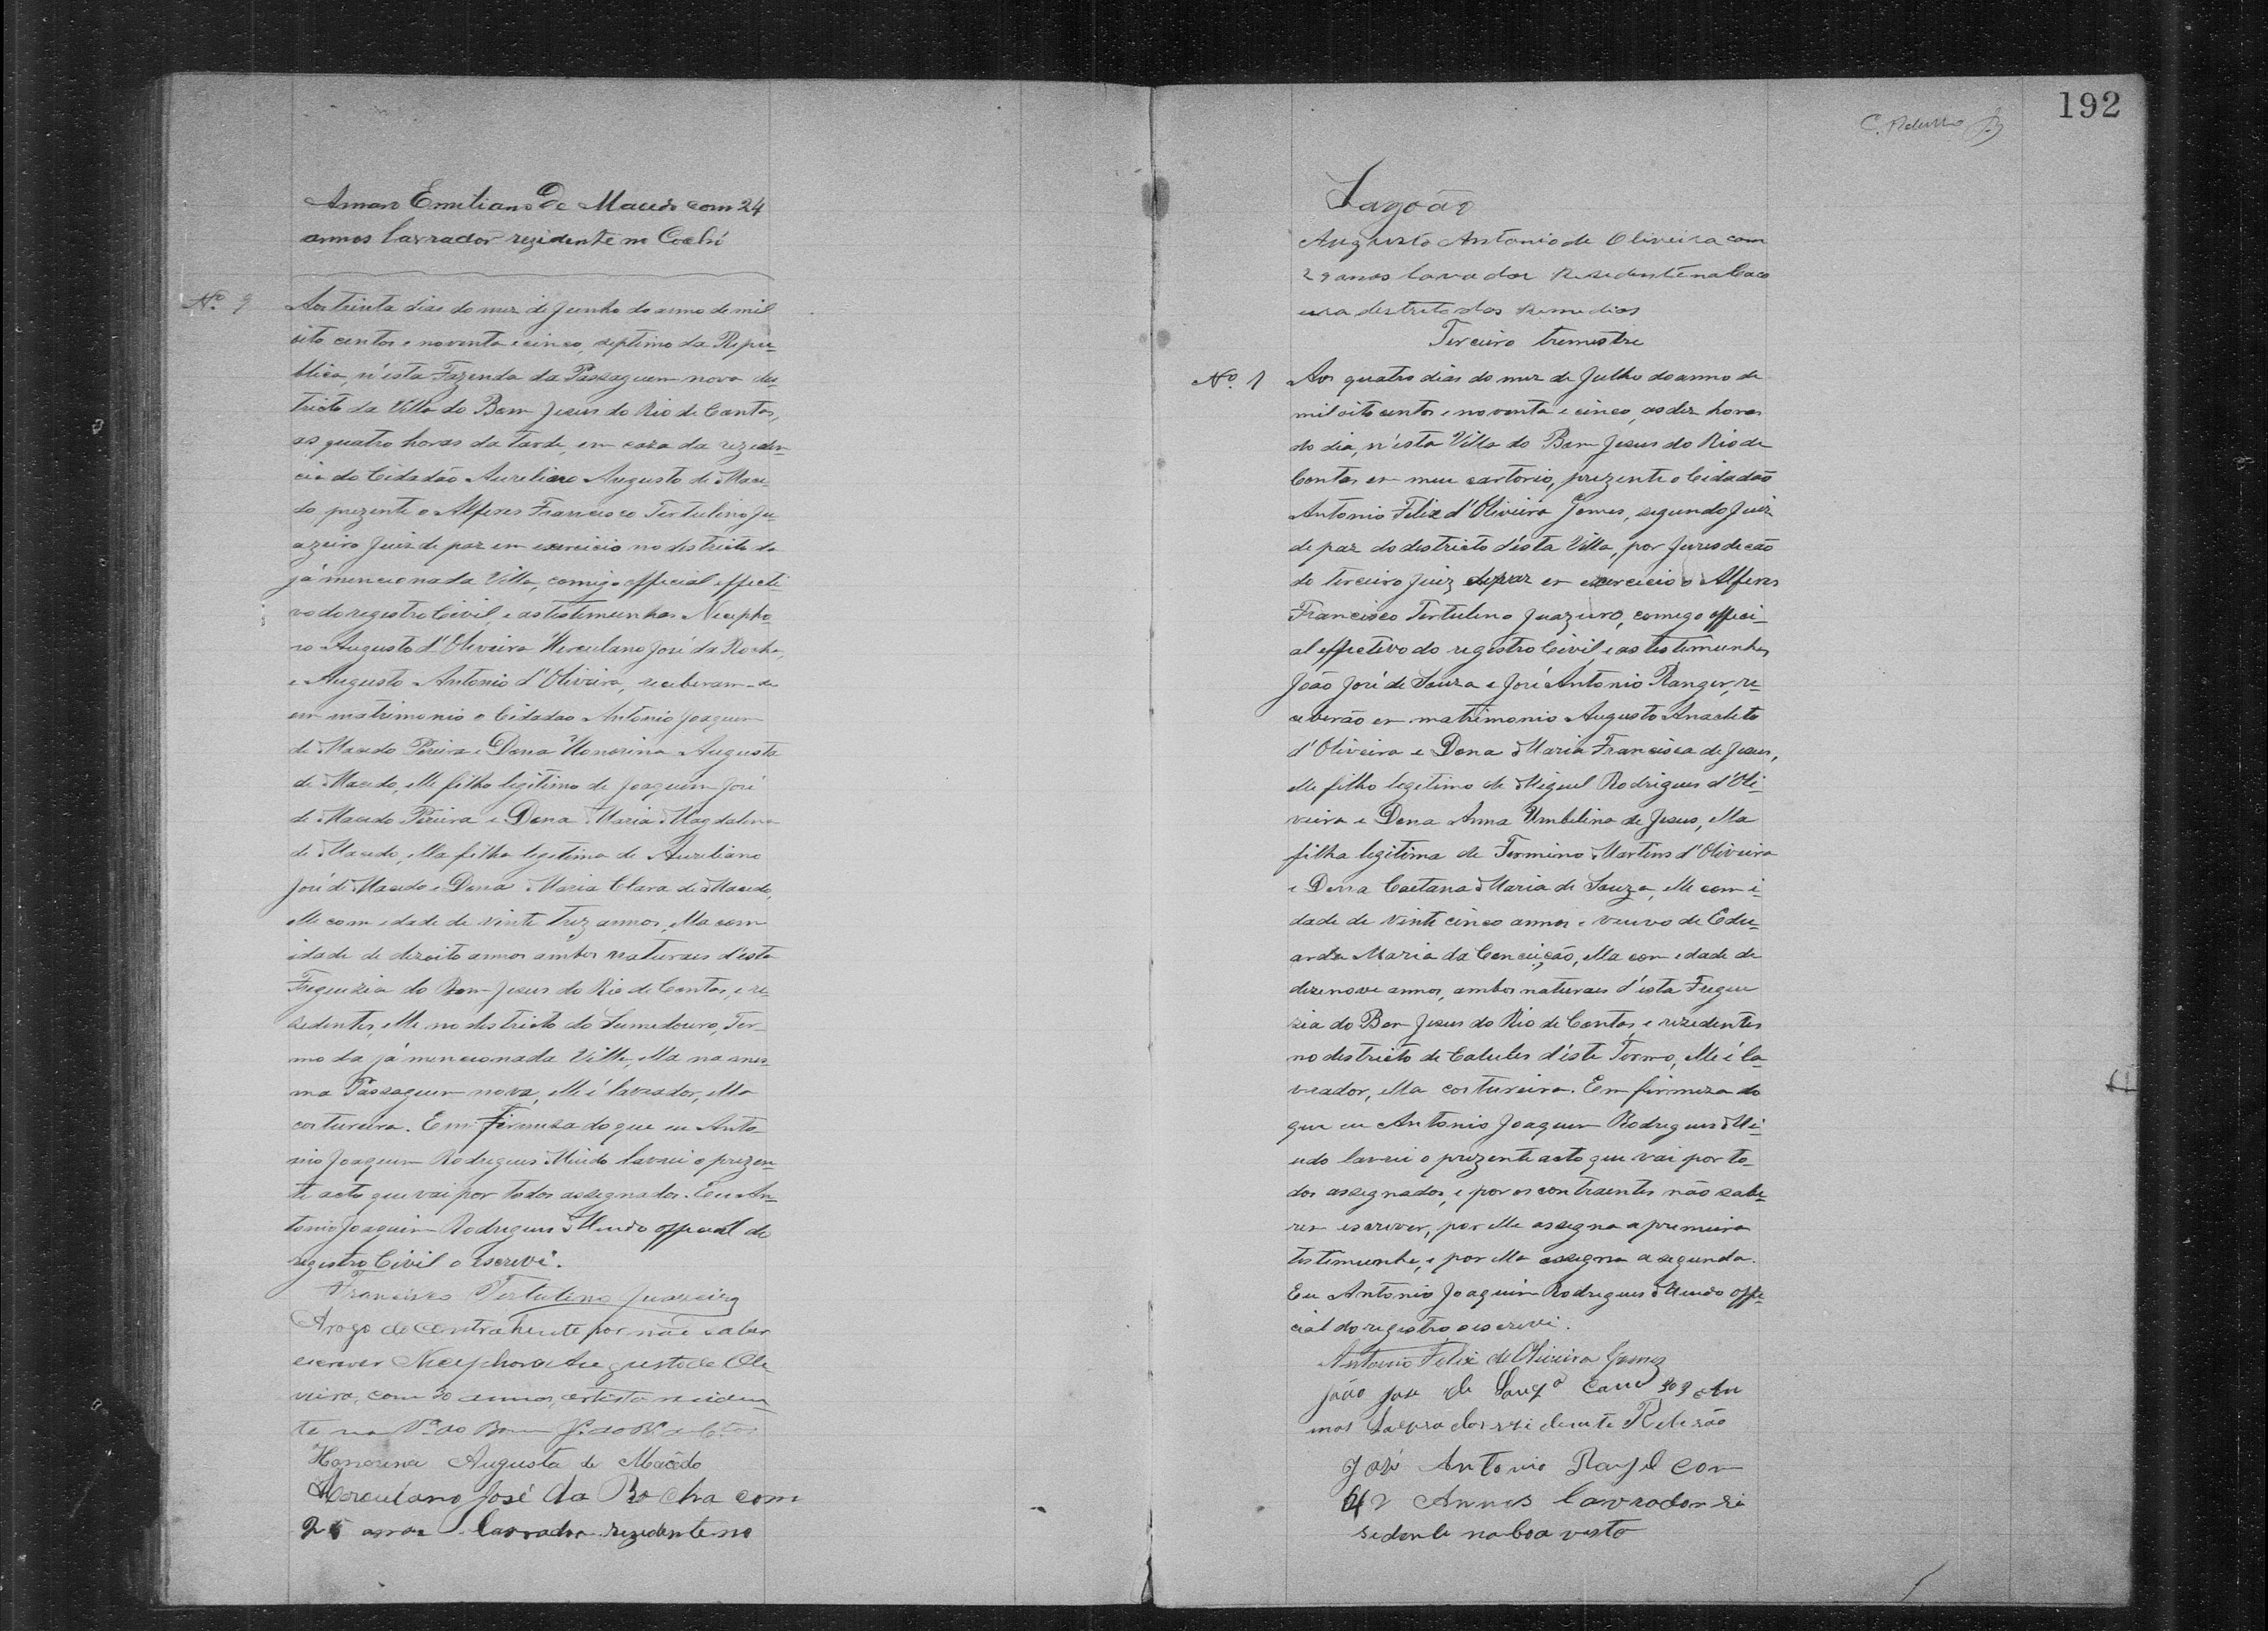 Amaro Emiliano de Macedo com 24
annos lavrador rezidente no Cochó
Nº. 9
Aos trinta dias do mez de Junho do anno de mil
oito centos e noventa e cinco, septimo da Repu-
blica, n'esta Fazenda da Passagem nova dis-
tricto da Villa do Bom Jesus do Rio de Contas,
as quatro horas da tarde, em caza da reziden-
cia do Cidadão Aureliano Augusto de Mace-
do prezente o Alferes Francisco Tertulino Ju-
azeiro Juiz de paz em exercicio no districto da
já mencionada Villa, comigo official effecti-
vo do registro Civil, e as testimunhas Nicepho-
ro Augusto d'Oliveira Herculano José da Rocha,
e Augusto Antonio d'Oliveira, receberam-se
em matrimonio o Cidadao Antonio Joaquim
de Macedo Pereira e Dona Honorina Augusta
de Macedo, elle filho legitimo de Joaquim José
de Macedo Pereira e Dona Maria Magdalena
de Macedo, ella filha legitima de Aureliano
José de Macedo e Dona Maria Clara de Macedo,
elle com idade de vinte trez annos, ella com
idade de dezoito annos ambos naturaes d'esta
Freguizia do Bom Jesus do Rio de Contas, e re-
sidentes, elle no districto do Sumedouro, Ter-
mo da já mencionada Villa, ella na mes-
ma Passagem nova, elle é lavrador, ella
costureira. Em firmeza do que eu Anto-
nio Joaquim Rodrigues Miudo lavrei o prezen-
te acto que vai por todos assignados. Eu An-
tonio Joaquim Rodrigues Miudo official do
registro Civil o escrevi.
Francisco Tertulino Juazeiro
Arogo do contrahente por não saber
escrever Nicephoro Augusto de Oli
veira, com 30 annos, artista residen-
te na Vª do Bom J. do R. de Ctas
Honorina Augusta de Macêdo
Herculano José da Rocha com
25 annos lavrador rezidente no
192
Lagoão
Augusto Antonio de Oliveira com
29 anos lavador Residente na Caco
eira destreto dos Remedios
Terceiro trimestre
Nº. 1
Aos quatro dias do mez de Julho do anno de
mil oito centos e noventa e cinco, as dez horas
do dia, n'esta Villa do Bom Jesus do Rio de
Contas em meu cartorio, prezente o Cidadão
Antonio Felix d'Oliveira Gomes, segundo Juiz
de paz do districto d'esta Villa, por Jurisdicão
do terceiro Juiz de paz em exercicio o Alferes
Francisco Tertulino Juazeiro, comigo offici-
al effectivo do registro Civil e as testimunhas
João José de Souza e José Antonio Rangel, re-
ceberão em matrimonio Augusto Anacleto
d'Oliveira e Dona Maria Francisca de Jesus,
elle filho legitimo de Miguel Rodrigues d'Oli-
veira e Dona Anna Umbilina de Jesus, ella
filha legitima de Firmino Martins d'Oliveira
e Dona Caetana Maria de Souza, elle com i
dade de vinte cinco annos e veuvo de Edu-
arda Maria da Conceição, ella com idade de
dezenove annos, ambos naturaes d'esta Fregue
zia do Bom Jesus do Rio de Contas, e rezidentes
no districto de Catules d'este Termo, elle é la-
vrador, ella costureira. Em firmeza do
que eu Antonio Joaquim Rodrigues Mi-
udo lavrei o prezente acto que vai por to-
dos assignados, e por os contraentes não sabe-
rem escrever, por elle assigna a primeira
testimunha, e por ella assigna a segunda.
Eu Antonio Joaquim Rodrigues Miudo offi-
cial do registro o escrevi.
Antonio Felix de Oliveira Gomes
João José de Souza Com 30 An
nos Lavrador rezidente
José Antonio Rangel com
42 Annos lavrador re
sidente na boa vista